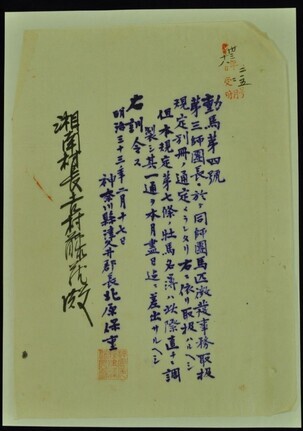 動馬第四號
第三師團長ニ於テ同師團馬匹徴發事務取扱
規定別冊ノ通定メラレタリ右ニ依リ取扱ハルヘシ
但本規定第七條ノ壮馬名簿ハ此際直チニ調
製シ其一通ヲ本月盡日迠ニ差出サルヘシ
右訓令ス
明治三十三年二月十七日
神奈川縣津久井郡長北原保重
湘南村長
殿